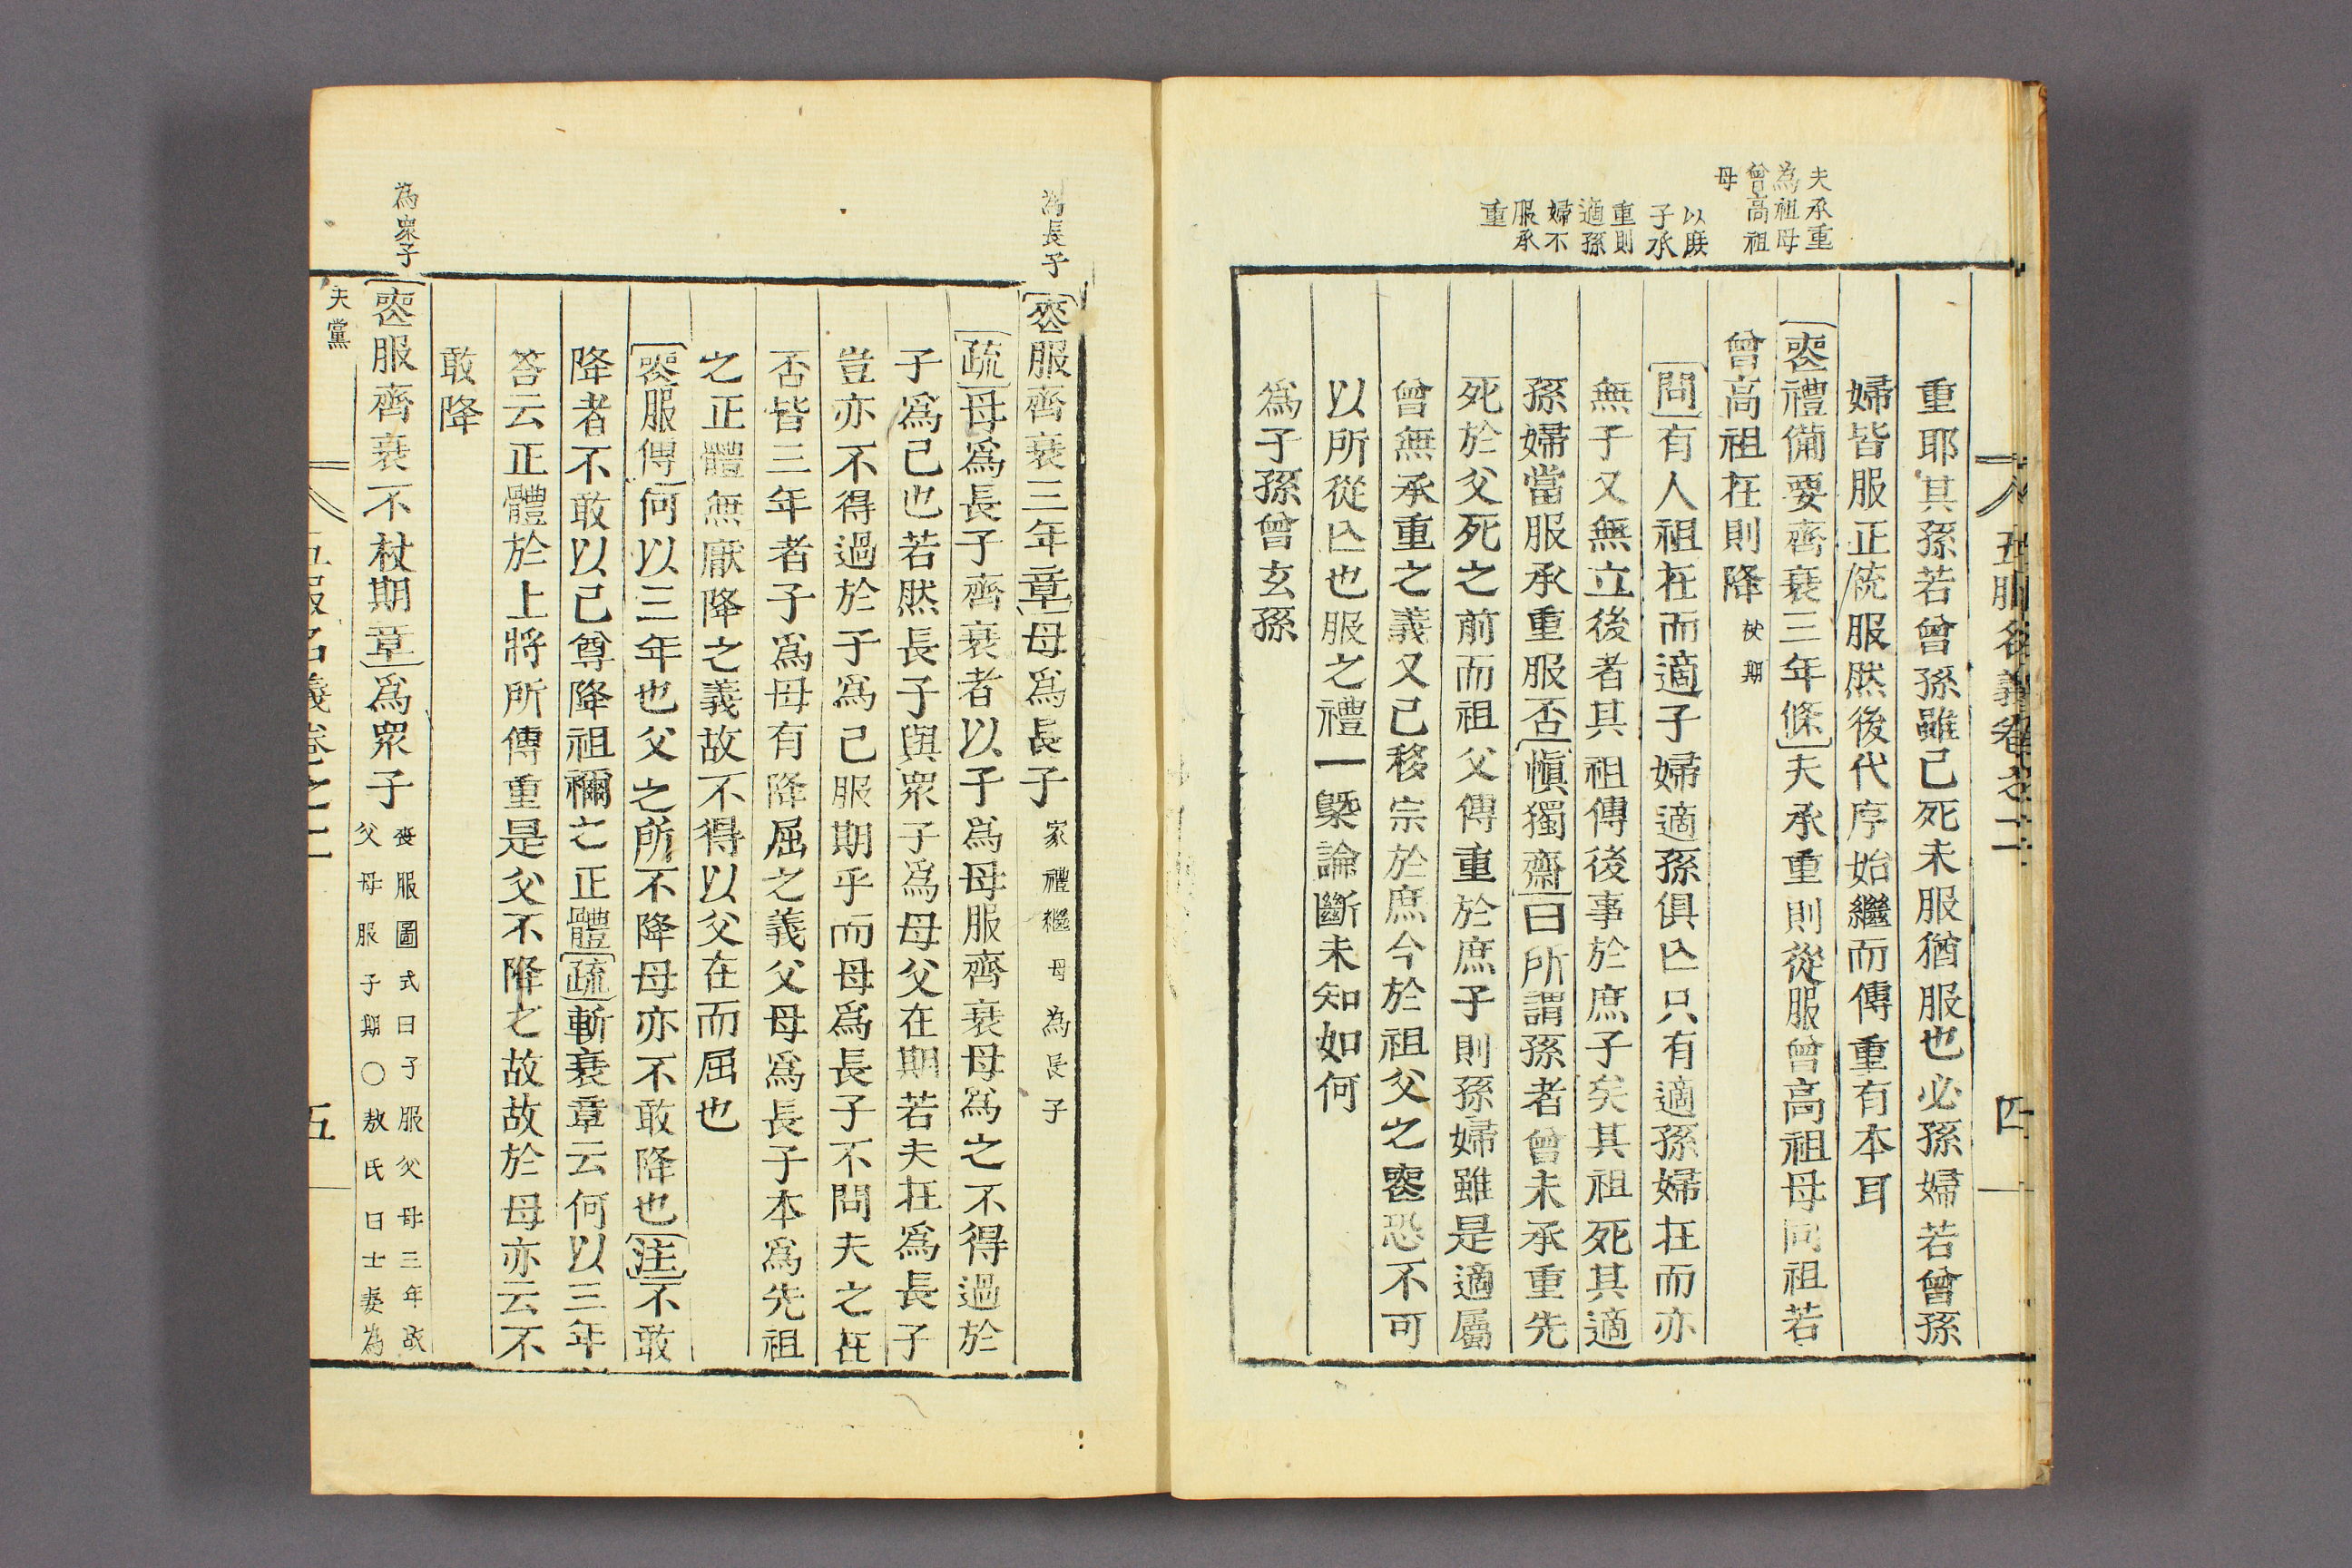 五服名義卷之二
四
夫承重
為祖母
曾高祖
母
以庶
子承
重則
適孫
婦不
服承
重
重耶其孫若曾孫雖已死未服猶服也必孫婦若曾孫
婦皆服正統服然後代序始繼而傳重有本耳
喪禮備要齊衰三年條夫承重則從服曾高祖母同祖若
曾高祖在則降杖期
問有人祖在而適子婦適孫俱亾只有適孫婦在而亦
無子又無立後者其祖傳後事於庶子矣其祖死其適
孫婦當服承重服否愼獨齋曰所謂孫者曾未承重先
死於父死之前而祖父傳重於庶子則孫婦雖是適屬
曾無承重之義又已移宗於庶今於祖父之喪恐不可
以所從亾也服之禮一槩論斷未知如何
爲子孫曾玄孫
為長子
喪服齊衰三年章母爲長子家禮繼母為長子
疏母爲長子齊衰者以子爲母服齊衰母爲之不得過於
子爲己也若然長子與衆子爲母父在期若夫在爲長子
豈亦不得過於子爲己服期乎而母爲長子不問夫之在
否皆三年者子爲母有降屈之義父母爲長子本爲先祖
之正體無厭降之義故不得以父在而屈也
喪服傳何以三年也父之所不降母亦不敢降也注不敢
降者不敢以己尊降祖禰之正體疏斬衰章云何以三年
答云正體於上將所傳重是父不降之故故於母亦云不
敢降
為衆子
喪服齊衰不杖期章爲衆子喪服圖式曰子服父母三年故
父母服子期〇敖氏曰士妻為
夫黨
五服名義卷之二
五